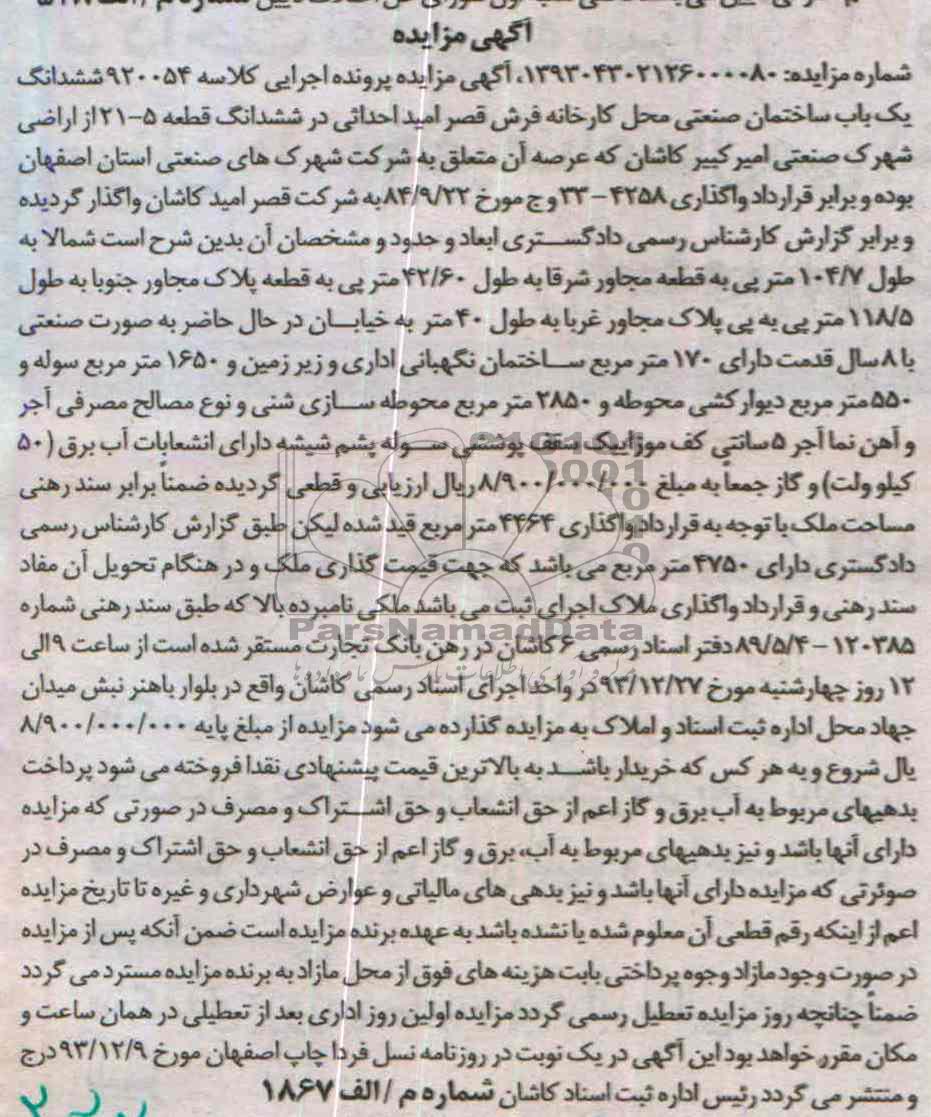 آگهی مزایده
شماره مزایده: ۱۳۹۳۰۴۳۰۲۱۲۶۰۰۰۰۸۰، آگهی مزایده پرونده اجرایی کلاسه ۹۲۰۰۵۴ ششدانگ
یک باب ساختمان صنعتی محل کارخانه فرش قصر امید احداثی در ششدانگ قطعه ۵-۲۱ از اراضی
شهرک صنعتی امیرکبیر کاشان که عرصه آن متعلق به شرکت شهرک های صنعتی استان اصفهان
بوده و برابر قرارداد واگذاری ۴۲۵۸ - ۳۳ و ج مورخ ۸۴/۹/۲۲ به شرکت قصر امید کاشان واگذار گردیده
و برابر گزارش کارشناس رسمی دادگستری ابعاد و حدود و مشخصان آن بدین شرح است شمالا به
طول ۱۰۴/۷ متر پی به قطعه مجاور شرقا به طول ۴۲/۶۰ متر پی به قطعه پلاک مجاور جنوبا به طول
۱۱۸/۵ متر پی به پی پلاک مجاور غربا به طول ۴۰ متر به خیابان در حال حاضر به صورت صنعتی
با ۸ سال قدمت دارای ۱۷۰ متر مربع ساختمان نگهبانی اداری و زیر زمین و ۱۶۵۰ متر مربع سوله و
۵۵۰ متر مربع دیوار کشی محوطه و ۲۸۵۰ متر مربع محوطه سازی شنی و نوع مصالح مصرفی آجر
و آهن نما آجر ۵ سانتی کف موزاییک سقف پوششی سوله پشم شیشه دارای انشعابات آب برق (۵۰
کیلو ولت) و گاز جمعاً به مبلغ ۸/۹۰۰/۰۰۰/۰۰۰ ریال ارزیابی و قطعی گردیده ضمناً برابر سند رهنی
مساحت ملک با توجه به قرارداد واگذاری ۴۴۶۴ متر مربع قید شده لیکن طبق گزارش کارشناس رسمی
دادگستری دارای ۴۷۵۰ متر مربع می باشد که جهت قیمت گذاری ملک و در هنگام تحویل آن مفاد
سند رهنی و قرارداد واگذاری ملاک اجرای ثبت می باشد ملکی نامبرده بالا که طبق سند رهنی شماره
۱۲۰۳۸۵ - ۸۹/۵/۴ دفتر اسناد رسمی ۶ کاشان در رهن بانک تجارت مستقر شده است از ساعت ۹ الی
۱۲ روز چهارشنبه مورخ ۹۳/۱۲/۲۷ در واحد اجرای اسناد رسمی کاشان واقع در بلوار باهنر نبش میدان
جهاد محل اداره ثبت اسناد و املاک به مزایده گذارده می شود مزایده از مبلغ پایه ۸/۹۰۰/۰۰۰/۰۰۰
یال شروع و به هر کس که خریدار باشد به بالاترین قیمت پیشنهادی نقدا فروخته می شود پرداخت
بدهیهای مربوط به آب برق و گاز اعم از حق انشعاب و حق اشتراک و مصرف در صورتی که مزایده
دارای آنها باشد و نیز بدهیهای مربوط به آب، برق و گاز اعم از حق انشعاب و حق اشتراک و مصرف در
صوئرتی که مزایده دارای آنها باشد و نیز بدهی های مالیاتی و عوارض شهرداری و غیره تا تاریخ مزایده
اعم از اینکه رقم قطعی آن معلوم شده یا نشده باشد به عهده برنده مزایده است ضمن آنکه پس از مزایده
در صورت وجود مازاد وجوه پرداختی بابت هزینه های فوق از محل مازاد به برنده مزایده مسترد می گردد
ضمناً چنانچه روز مزایده تعطیل رسمی گردد مزایده اولین روز اداری بعد از تعطیلی در همان ساعت و
مکان مقرر خواهد بود این آگهی در یک نوبت در روزنامه نسل فردا چاپ اصفهان مورخ ۹۳/۱۲/۹ درج
و منتشر می گردد رئیس اداره ثبت اسناد کاشان شماره م / الف ۱۸۶۷
ParsNamadData